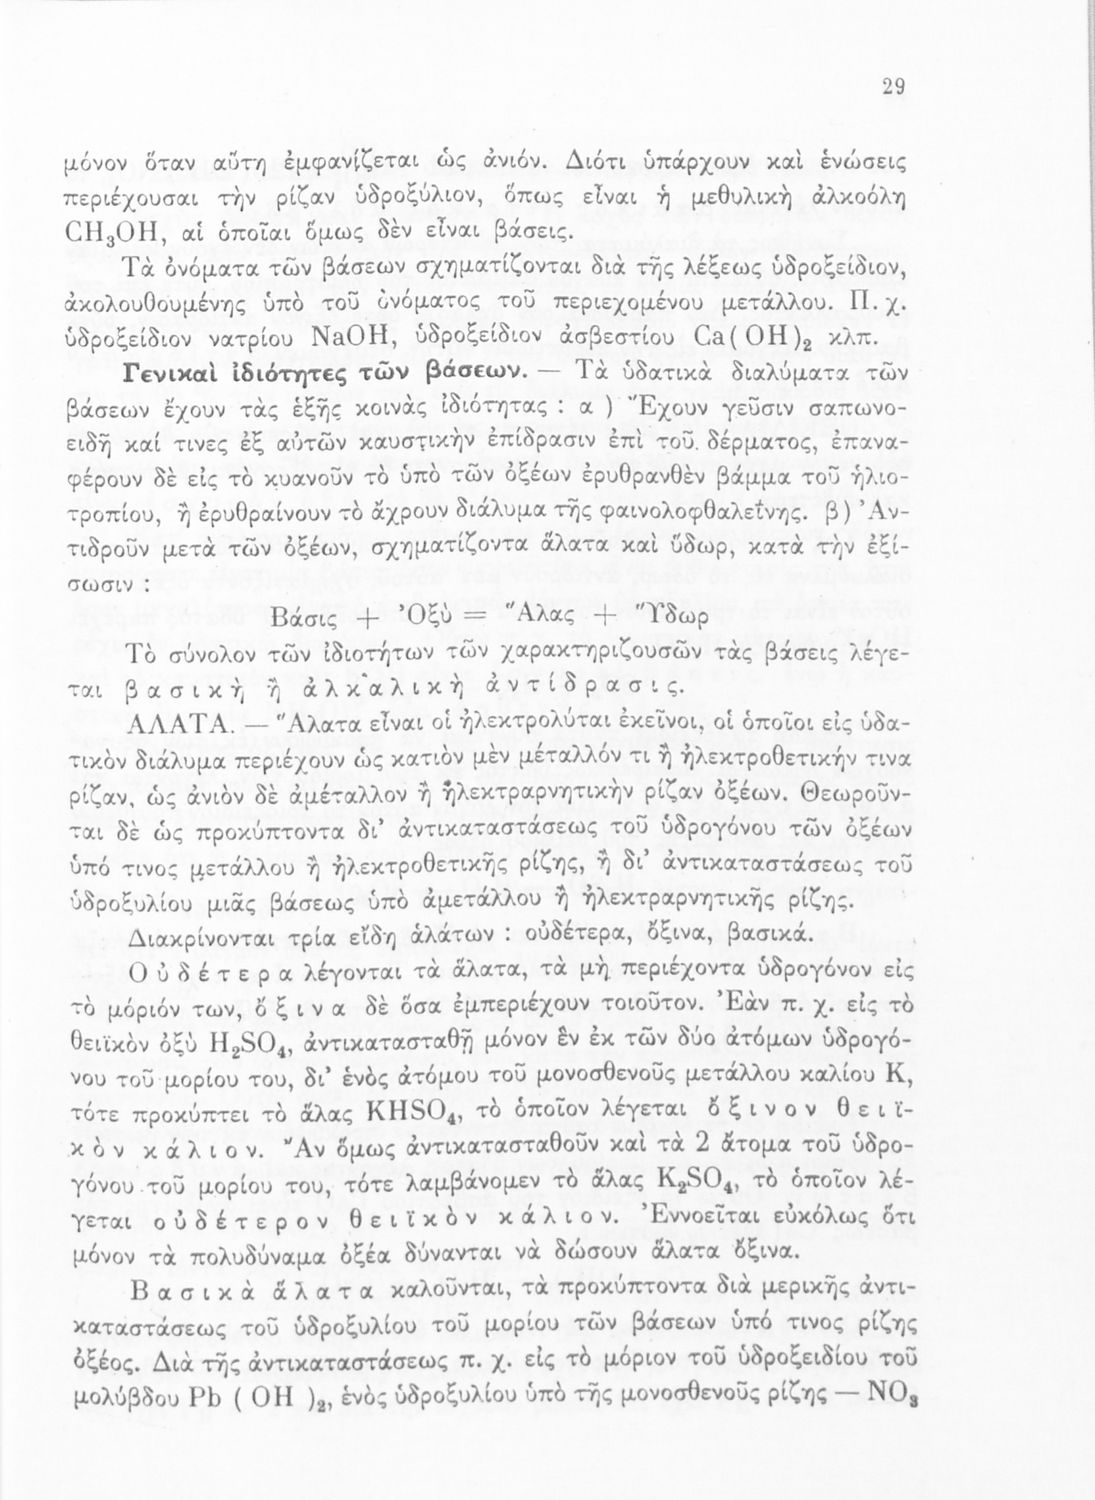 29
μόνον ὅταν αὕτη ἐμφανίζεται ὡς ἀνιόν. Διότι ὑπάρχουν καὶ ἑνώσεις
περιέχουσαι τὴν ρίζαν ὑδροξύλιον, ὅπως εἶναι ἡ μεθυλικὴ ἀλκοόλη
CH₃OH, αἱ ὁποῖαι ὅμως δὲν εἶναι βάσεις.
Τὰ ὀνόματα τῶν βάσεων σχηματίζονται διὰ τῆς λέξεως ὑδροξείδιον,
ἀκολουθουμένης ὑπὸ τοῦ ὀνόματος τοῦ περιεχομένου μετάλλου. Π.χ.
ὑδροξείδιον νατρίου NaOH, ὑδροξείδιον ἀσβεστίου Ca(OH)₂ κλπ.
Γενικαὶ ἰδιότητες τῶν βάσεων. — Τὰ ὑδατικὰ διαλύματα τῶν
βάσεων ἔχουν τὰς ἑξῆς κοινὰς ἰδιότητας : α ) Ἔχουν γεῦσιν σαπωνο-
ειδῆ καί τινες ἐξ αὐτῶν καυστικὴν ἐπίδρασιν ἐπὶ τοῦ δέρματος, ἐπανα-
φέρουν δὲ εἰς τὸ κυανοῦν τὸ ὑπὸ τῶν ὀξέων ἐρυθρανθὲν βάμμα τοῦ ἡλιο-
τροπίου, ἢ ἐρυθραίνουν τὸ ἄχρουν διάλυμα τῆς φαινολοφθαλεΐνης. β) Ἀν-
τιδροῦν μετὰ τῶν ὀξέων, σχηματίζοντα ἅλατα καὶ ὕδωρ, κατὰ τὴν ἐξί-
σωσιν :
Βάσις + Ὀξὺ = Ἅλας + Ὕδωρ
Τὸ σύνολον τῶν ἰδιοτήτων τῶν χαρακτηριζουσῶν τὰς βάσεις λέγε-
ται β α σ ι κ ὴ ἢ ἀ λ κ α λ ι κ ὴ ἀ ν τ ί δ ρ α σ ι ς.
ΑΛΑΤΑ. — Ἅλατα εἶναι οἱ ἠλεκτρολύται ἐκεῖνοι, οἱ ὁποῖοι εἰς ὑδα-
τικὸν διάλυμα περιέχουν ὡς κατιὸν μὲν μέταλλόν τι ἢ ἠλεκτροθετικήν τινα
ρίζαν, ὡς ἀνιὸν δὲ ἀμέταλλον ἢ ἠλεκτραρνητικὴν ρίζαν ὀξέων. Θεωροῦν-
ται δὲ ὡς προκύπτοντα δι' ἀντικαταστάσεως τοῦ ὑδρογόνου τῶν ὀξέων
ὑπό τινος μετάλλου ἢ ἠλεκτροθετικῆς ρίζης, ἢ δι' ἀντικαταστάσεως τοῦ
ὑδροξυλίου μιᾶς βάσεως ὑπὸ ἀμετάλλου ἢ ἠλεκτραρνητικῆς ρίζης.
Διακρίνονται τρία εἴδη ἁλάτων : οὐδέτερα, ὄξινα, βασικά.
Ο ὐ δ έ τ ε ρ α λέγονται τὰ ἅλατα, τὰ μὴ περιέχοντα ὑδρογόνον εἰς
τὸ μόριόν των, ὄ ξ ι ν α δὲ ὅσα ἐμπεριέχουν τοιοῦτον. Ἐὰν π. χ. εἰς τὸ
θειϊκὸν ὀξὺ H₂SO₄, ἀντικατασταθῇ μόνον ἓν ἐκ τῶν δύο ἀτόμων ὑδρογό-
νου τοῦ μορίου του, δι' ἑνὸς ἀτόμου τοῦ μονοσθενοῦς μετάλλου καλίου K,
τότε προκύπτει τὸ ἅλας KHSO₄, τὸ ὁποῖον λέγεται ὄ ξ ι ν ο ν θ ε ι ϊ-
κ ὸ ν κ ά λ ι ο ν. Ἂν ὅμως ἀντικατασταθοῦν καὶ τὰ 2 ἄτομα τοῦ ὑδρο-
γόνου τοῦ μορίου του, τότε λαμβάνομεν τὸ ἅλας K₂SO₄, τὸ ὁποῖον λέ-
γεται ο ὐ δ έ τ ε ρ ο ν θ ε ι ϊ κ ὸ ν κ ά λ ι ο ν. Ἐννοεῖται εὐκόλως ὅτι
μόνον τὰ πολυδύναμα ὀξέα δύνανται νὰ δώσουν ἅλατα ὄξινα.
Β α σ ι κ ὰ ἅ λ α τ α καλοῦνται, τὰ προκύπτοντα διὰ μερικῆς ἀντι-
καταστάσεως τοῦ ὑδροξυλίου τοῦ μορίου τῶν βάσεων ὑπό τινος ρίζης
ὀξέος. Διὰ τῆς ἀντικαταστάσεως π. χ. εἰς τὸ μόριον τοῦ ὑδροξειδίου τοῦ
μολύβδου Pb ( OH )₂, ἑνὸς ὑδροξυλίου ὑπὸ τῆς μονοσθενοῦς ρίζης — NO₃